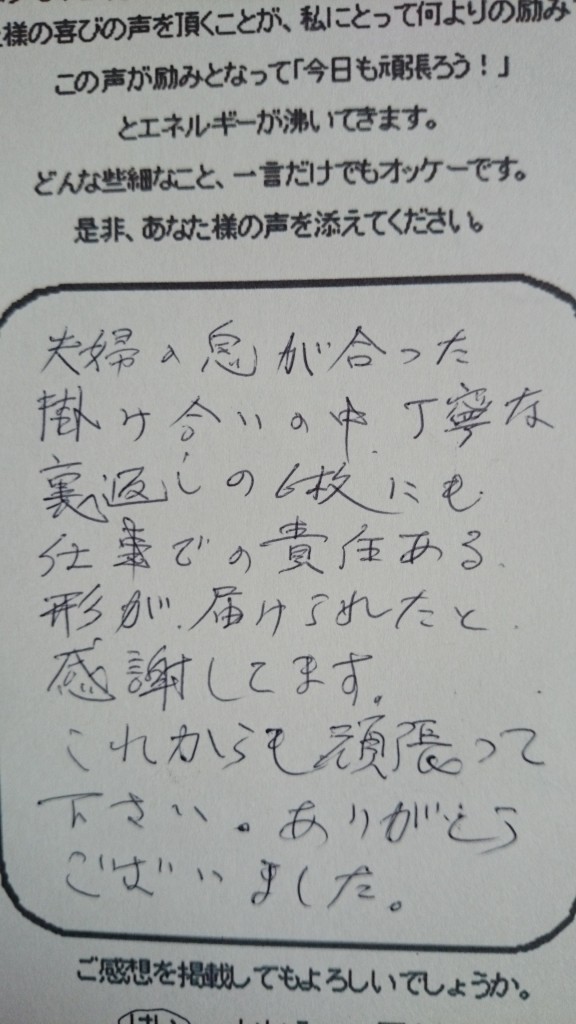 様の喜びの声を頂くことが、私にとって何よりの励み
この声が励みとなって「今日も頑張ろう！」
とエネルギーが沸いてきます。
どんな些細なこと、一言だけでもオッケーです。
是非、あなた様の声を添えてください。
夫婦の息が合った
掛け合いの中、丁寧な
裏返しの6枚にも
仕事での責任ある
形が、届けられたと
感謝してます。
これからも頑張って
下さい。ありがとう
ございました。
ご感想を掲載してもよろしいでしょうか。
はい